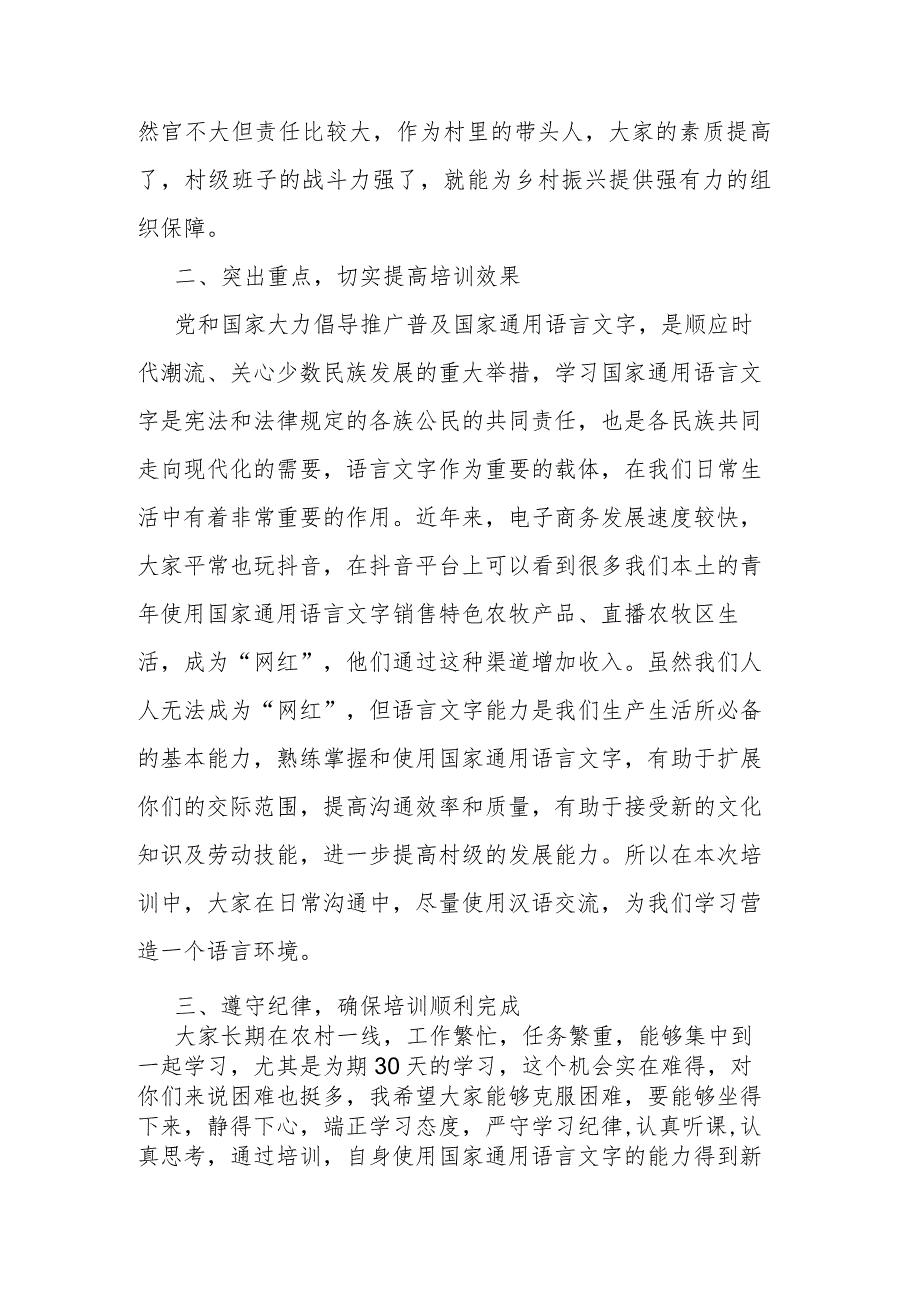 然官不大但责任比较大，作为村里的带头人，大家的素质提高
了，村级班子的战斗力强了，就能为乡村振兴提供强有力的组
织保障。
二、突出重点，切实提高培训效果
党和国家大力倡导推广普及国家通用语言文字，是顺应时
代潮流、关心少数民族发展的重大举措，学习国家通用语言文
字是宪法和法律规定的各族公民的共同责任，也是各民族共同
走向现代化的需要，语言文字作为重要的载体，在我们日常生
活中有着非常重要的作用。近年来，电子商务发展速度较快，
大家平常也玩抖音，在抖音平台上可以看到很多我们本土的青
年使用国家通用语言文字销售特色农牧产品、直播农牧区生
活，成为“网红”，他们通过这种渠道增加收入。虽然我们人
人无法成为“网红”，但语言文字能力是我们生产生活所必备
的基本能力，熟练掌握和使用国家通用语言文字，有助于扩展
你们的交际范围，提高沟通效率和质量，有助于接受新的文化
知识及劳动技能，进一步提高村级的发展能力。所以在本次培
训中，大家在日常沟通中，尽量使用汉语交流，为我们学习营
造一个语言环境。
三、遵守纪律，确保培训顺利完成
大家长期在农村一线，工作繁忙，任务繁重，能够集中到
一起学习，尤其是为期30天的学习，这个机会实在难得，对
你们来说困难也挺多，我希望大家能够克服困难，要能够坐得
下来，静得下心，端正学习态度，严守学习纪律,认真听课,认
真思考，通过培训，自身使用国家通用语言文字的能力得到新